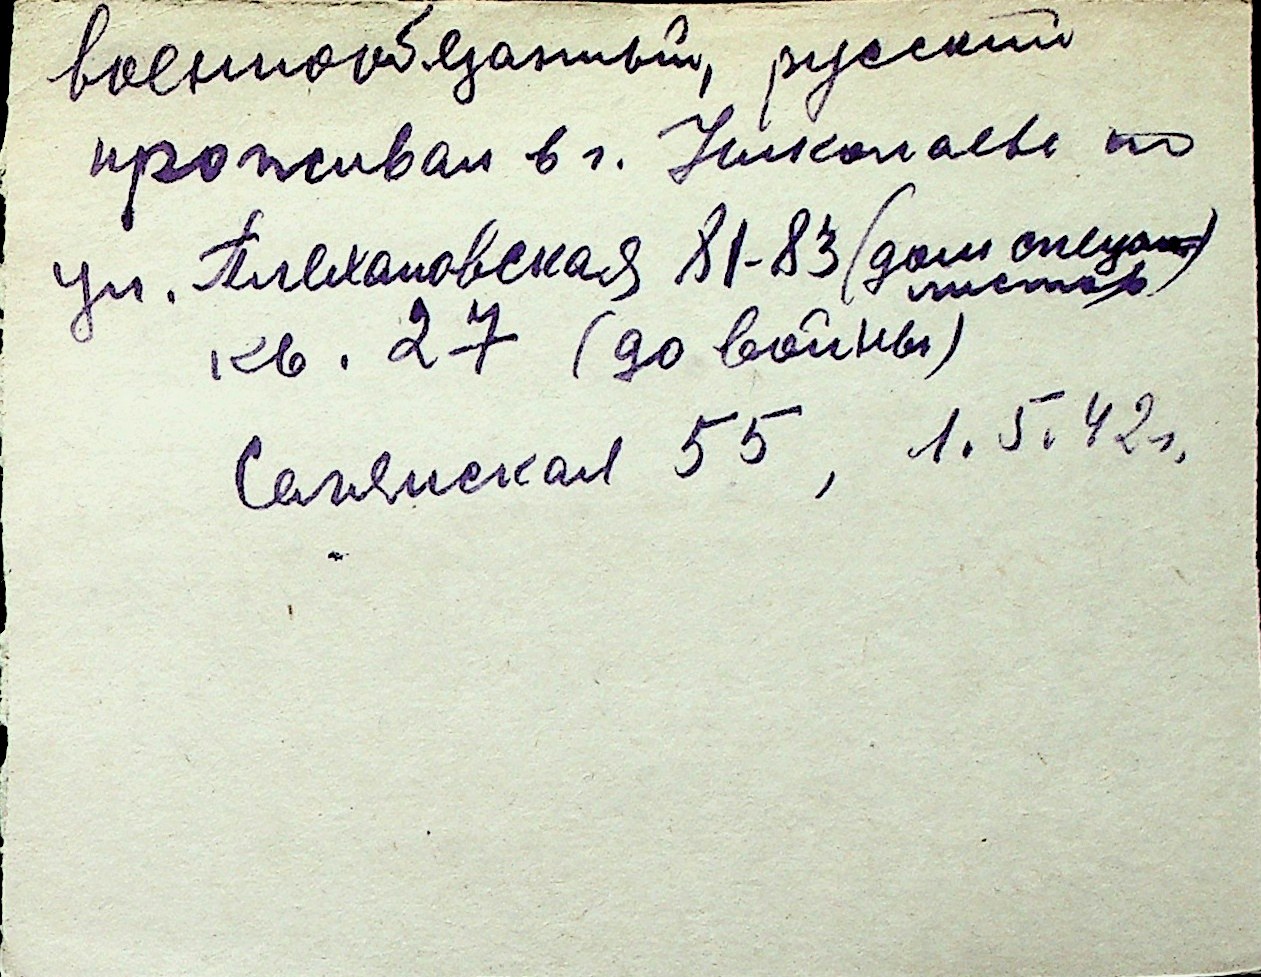 военнообязанный, русский
проживал в г. Николаеве по
ул. Плехановская 81-83 (дом специа-
листов)
кв. 27 (до войны)
55, 1.5.42г.